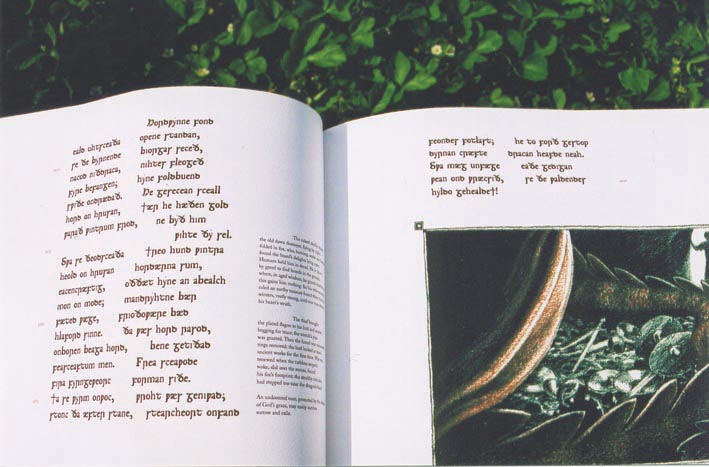 Hordwynne fond
eald uhtsceaða opene standan,
se ðe byrnende biorgas seceð,
nacod niðdraca, nihtes fleogeð
fyre befangen; hyne foldbuend
swiðe ondrædað. He gesecean sceall
hord on hrusan, þær he hæðen gold
warað wintrum frod, ne byð him
wihte ðy sel.
Swa se ðeodsceaða þreo hund wintra
heold on hrusan hordærna sum,
eacencræftig, oððæt hyne an abealch
mon on mode; mandryhtne bær
fæted wæge, frioðowære bæd
hlaford sinne. Ða wæs hord rasod,
onboren beaga hord, bene getiðad
feasceaftum men. Frea sceawode
fira fyrngeweorc forman siðe.
þa se wyrm onwoc, wroht wæs geniwad;
stonc ða æfter stane, stearcheort onfand
The naked
the old dawn destroyer, flying by
folded in fire, who, burning,
found the hoard's delights lying open.
Humans hold him in dread. He is
by greed to find hoards in the ground,
where, in aged wisdom, he guards
this gains him nothing. So
ruled an earthy treasure
winters, vastly strong, until one
his heart's wrath.
The thief brought
the plated flagon to his lord and
begging for truce; the
was granted. Then the hoard was
rings removed; the lord looked
ancient works for the first time.
renewed when the
woke, slid over the stones, found
his foe's footprint; the stealthy
had stepped too near the dragon's head
An undoomed man, protected by the
of God's grace, may easily survive
sorrow and exile.
feondes fotlast; he to forð gestop
dyrnan cræfte dracan heafde neah.
Swa mæg unfæge eaðe gedigan
wean ond wræcsið, se ðe waldendes
hyldo gehealdeþ!